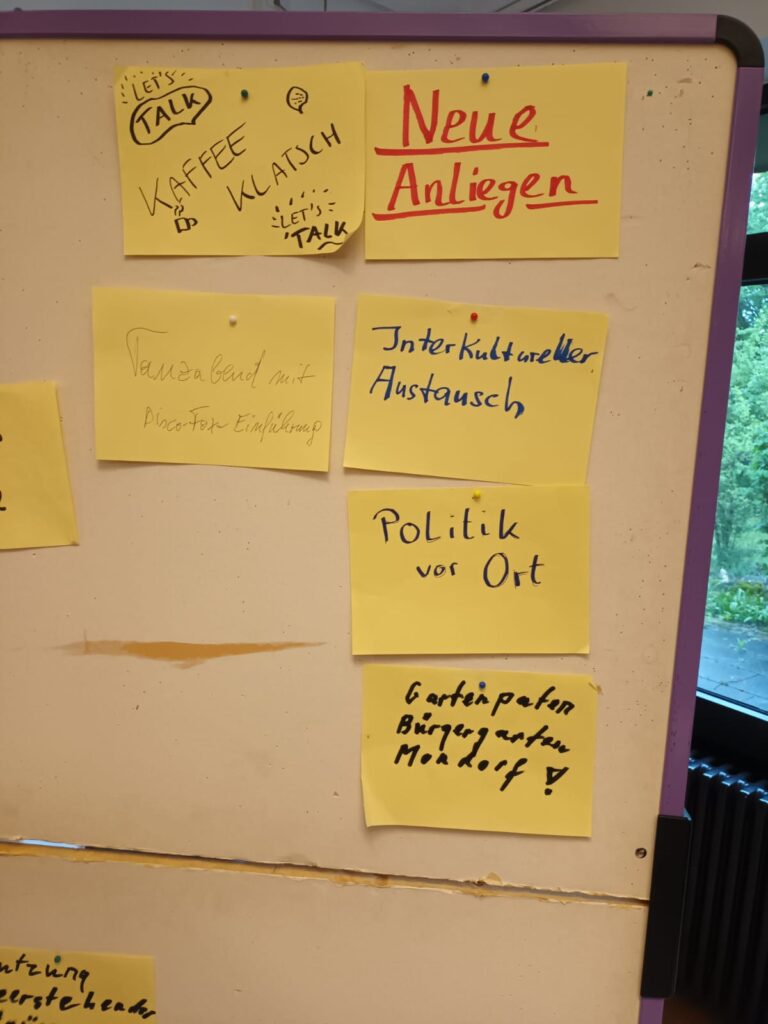 LET'S
TALK
KAFFEE
KLATSCH
LET'S
TALK
Neue
Anliegen
Tanzabend mit
Disco-Fox-Einführung
Interkultureller
Austausch
Politik
vor Ort
Gartenpaten
Bürgergarten
Mondorf !
utzung
eerstehender